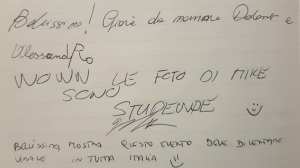 Bellissimo! Gioie da mamma e
Alessandro
WOWNN LE FOTO DI MIKE
SONO
STUPENDE
BELLISSIMA MOSTRA QUESTO EVENTO DEVE DIVENTARE
IN TUTTA ITALIA